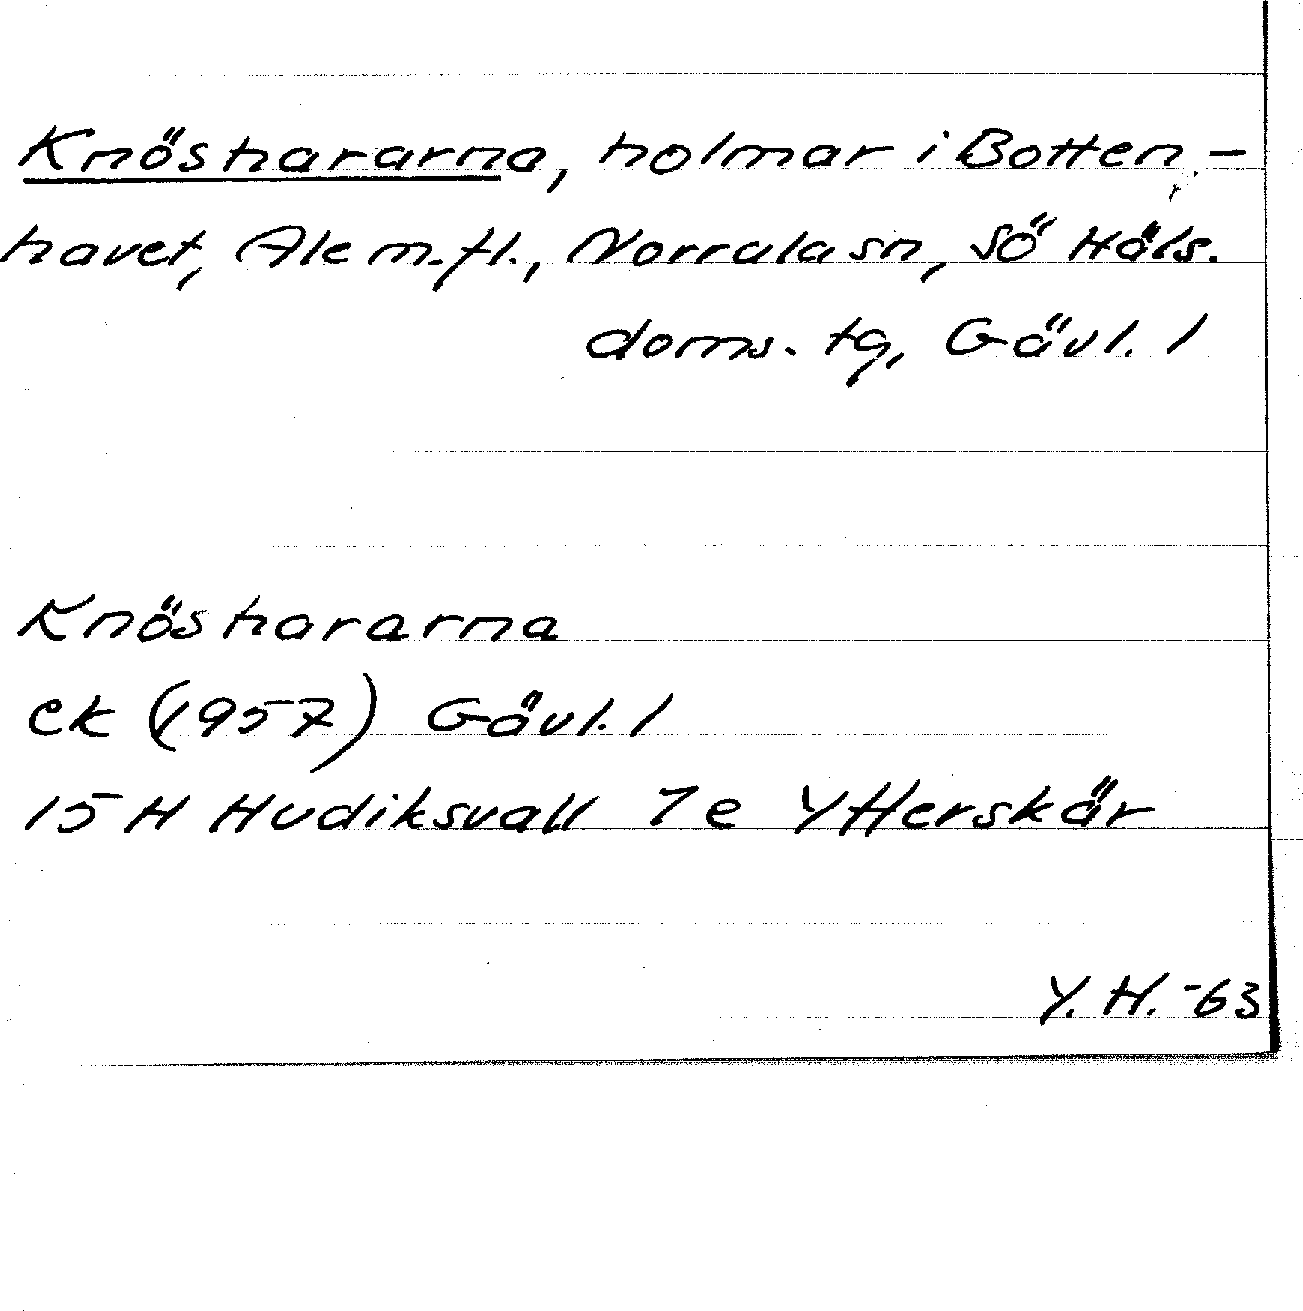 Knöshararna, holmar i Botten-
havet, Ale m.fl., Norrala sn, Sö Häls.
doms. tg, Gävl. l
Knöshararna
ek (1957) Gävl. l
15 H Hudiksvall 7e Ytterskär
Y. H. -63